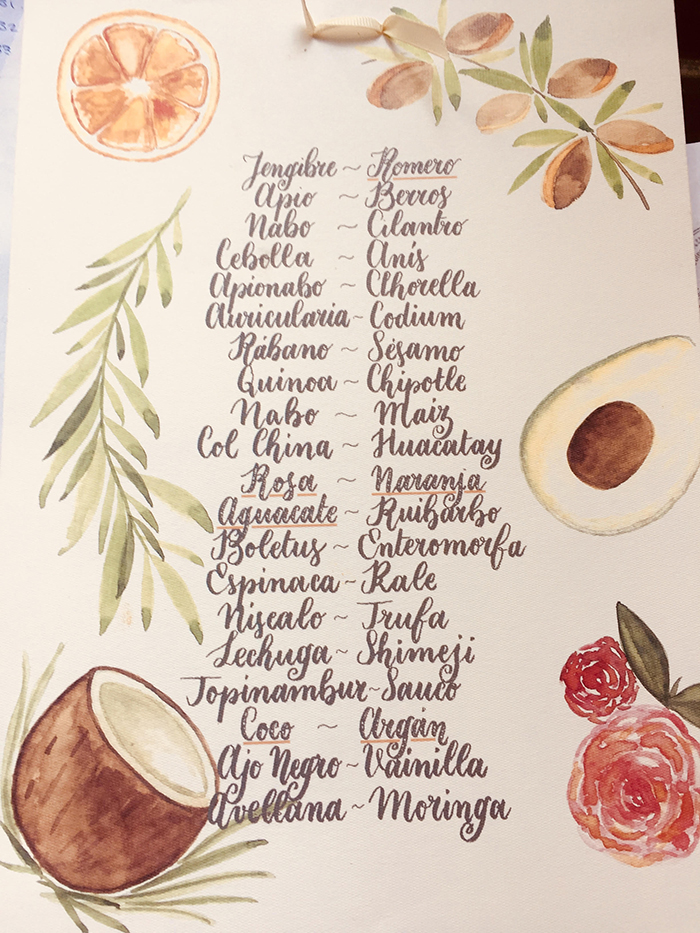 31
32
33
Jengibre ~ Romero
Apio ~ Berros
Nabo ~ Cilantro
Cebolla ~ Anís
Apionabo ~ Chorella
Auricularia ~ Codium
Rábano ~ Sésamo
Quinoa ~ Chipotle
Nabo ~ Maiz
Col China ~ Huacatay
Rosa ~ Naranja
Aguacate ~ Ruibarbo
Boletus ~ Enteromorfa
Espinaca ~ Kale
Niscalo ~ Trufa
Lechuga ~ Shimeji
Topinambur ~ Sauco
Coco ~ Argán
Ajo Negro ~ Vainilla
Avellana ~ Moringa